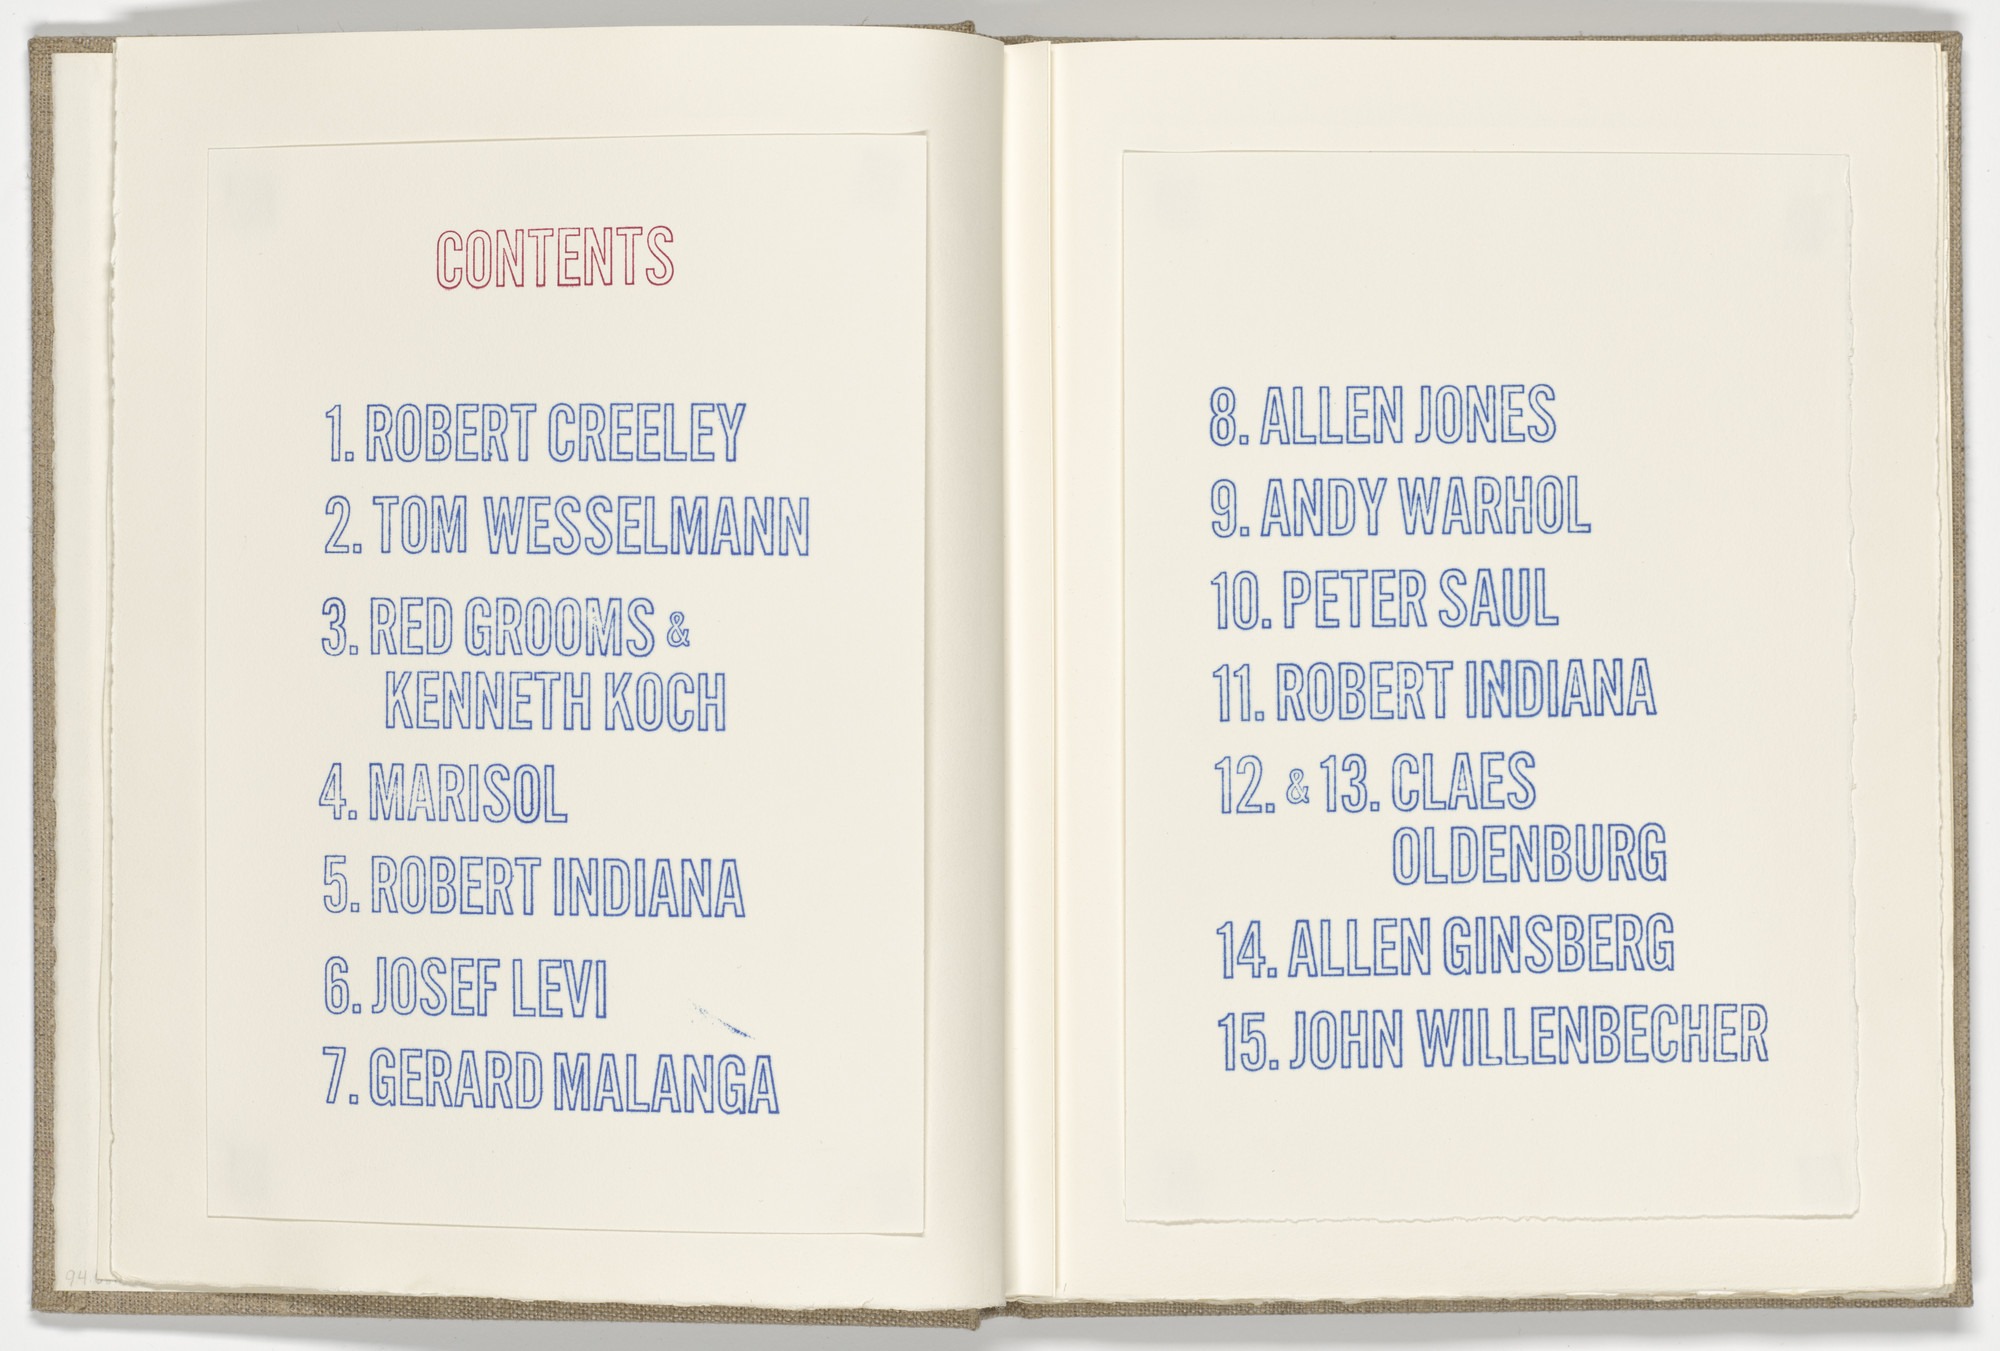 CONTENTS
1. ROBERT CREELEY
2. TOM WESSELMANN
3. RED GROOMS &
KENNETH KOCH
4. MARISOL
5. ROBERT INDIANA
6. JOSEF LEVI
7. GERARD MALANGA
8. ALLEN JONES
9. ANDY WARHOL
10. PETER SAUL
11. ROBERT INDIANA
12. & 13. CLAES
OLDENBURG
14. ALLEN GINSBERG
15. JOHN WILLENBECHER